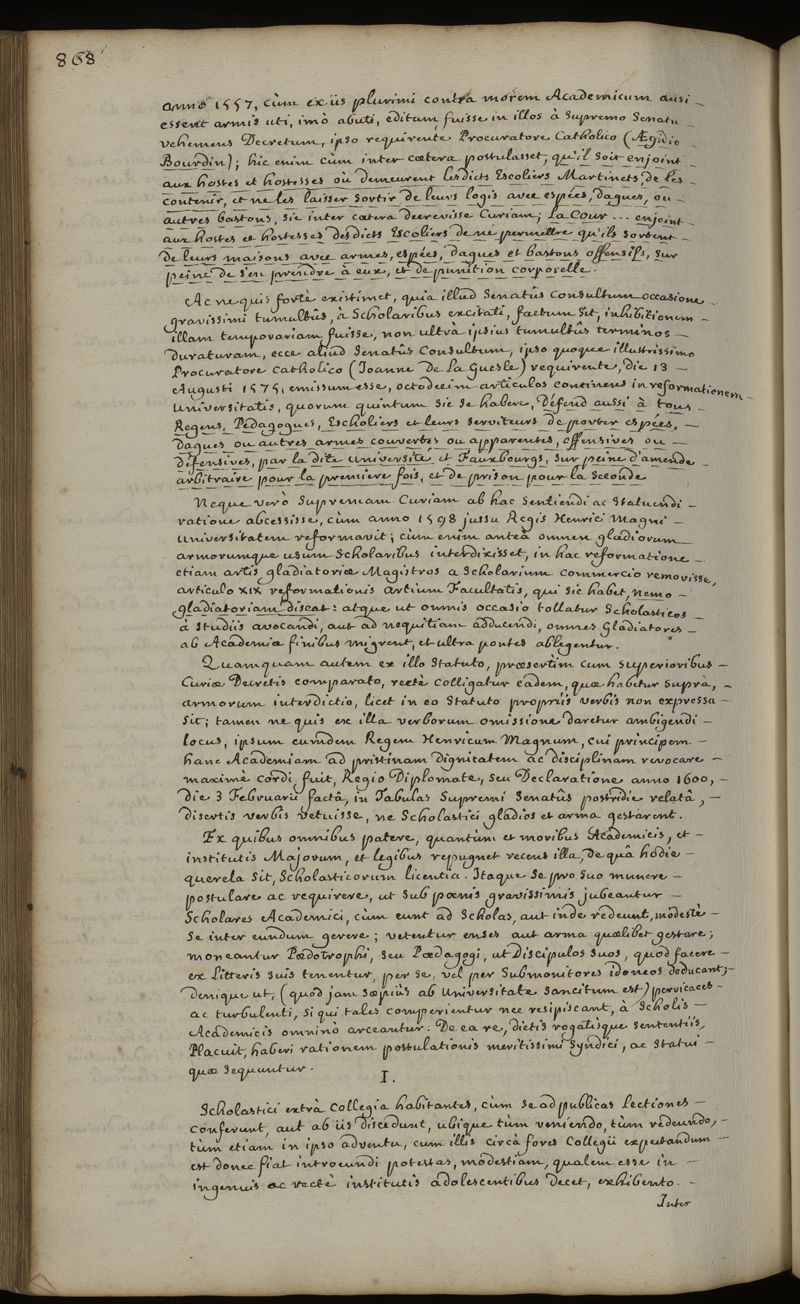 868
anno 1557, cùm ex iis plurimi contra morem Academicum ausi
essent armis uti, imò abuti, editum fuisse in illos à Supremo Senatu
vehemens Decretum, ipso requirente Procuratore Catholico (Ægidio
Bourdin); hic enim cùm inter cætera postulasset, qu'il soit enjoint
aux hostes et hostesses où demeurent lesdicts Escoliers Martinets, de les
contenir, et ne les laisser sortir de leurs logis avec espées, dagues, ou
autres bastons, sic inter cætera decrevisse Curiam; La Cour ... enjoint
aux hostes et hostesses desdicts Escoliers de ne permettre qu'ils sortent
de leurs maisons avec armes, espées, dagues et bastons offensifs, sur
peine de s'en prendre à eux, et de punition corporelle.
Ac ne quis fortè existimet, quia illud Senatûs Consultum occasione
gravissimi tumultûs, à Scholaribus excitati, factum sit, inhibitionem
illam temporariam fuisse, non ultrà ipsius tumultûs terminos
duraturam, ecce aliud Senatûs Consultum, ipso quoque illustrissimo
Procuratore Catholico (Joanne De La Guesle) requirente, die 13
Augusti 1575, emissum esse, octodecim articulos continens in reformationem
Universitatis, quorum quintum sic se habere, Défend aussi à tous
Regens, Pédagogues, Escholiers et leurs serviteurs de porter espées,
dagues ou autres armes couvertes ou apparentes, offensives ou
défensives, par la dite Université et Fauxbourgs, sur peine d'amende
arbitraire pour la premiere fois, et de prison pour la seconde
Neque verò Supremam Curiam ab hac sentiendi ac statuendi
ratione abcessisse, cùm anno 1598 jussu Regis Henrici Magni
Universitatem reformavit; cùm enim anteà omnem gladiorum
armorumque usum Scholaribus interdixisset, in hac reformatione
etiam artis gladiatoriæ Magistros a Scholarium commercio removisse,
articulo XIX reformationis artium Facultatis, qui sic habet, Nemo
gladiatoriam discat: atque ut omnis occasio tollatur Scholasticos
à studiis avocandi, aut ad nequitiam adducendi, omnes Gladiatores
ab Academiæ finibus migrent, et ultra pontes ablegentur.
Quamquam autem ex illo Statuto, præsertim cum superioribus
Curiæ Decretis comparato, rectè colligatur eadem, quæ habetur suprà,
armorum interdictio, licet in eo Statuto propriis verbis non expressa
sit; tamen ne quis ex illa verborum omissione daretur ambigendi
locus, ipsum eumdem Regem Henricum Magnum, cui principem
hanc Academiam ad pristinam dignitatem ac disciplinam revocare
maximè cordi fuit, Regio Diplomate, seu Declaratione anno 1600,
die 3 Februarii factâ, in Tabulas Supremi Senatûs postridie relatâ,
disertis verbis vetuisse, ne Scholastici gladios et arma gestarent.
Ex quibus omnibus patere, quantùm et moribus Academicis, et
institutis Majorum, et legibus repugnet recens illa, de quâ hodie
querela sit, Scholasticorum licentia. Itaque se pro suo munere
postulare ac requirere, ut sub pœnis gravissimis jubeantur
Scholares Academici, cùm eunt ad Scholas, aut inde redeunt, modestè
se inter eundum gerere; vetentur enses aut arma quælibet gestare;
moneantur Pædotrophi, seu Pædagogi, ut Discipulos suos, quod facere
ex Litteris suis tenentur, per se, vel per Submonitores idoneos deducant;
denique ut, (quod jam sæpiùs ab Universitate sancitum est) pervicaces
ac turbulenti, si qui tales comperientur nec resipiscant, à Scholis
Academicis omninò arceantur: De ea re, dictis rogatisque sententiis,
Placuit, haberi rationem postulationis meritissimi Syndici, ac statui
quæ sequuntur.
I.
Scholastici extrà Collegia habitantes, cùm se ad publicas Lectiones
conferunt, aut ab iis discedunt, ubique tùm veniendo, tùm redeundo,
tùm etiam in ipso adventu, cum illis circà fores Collegii expectandum
est donec fiat introeundi potestas, modestiam, qualem esse in
ingenuis ac rectè institutis adolescentibus decet, exhibento.
Inter